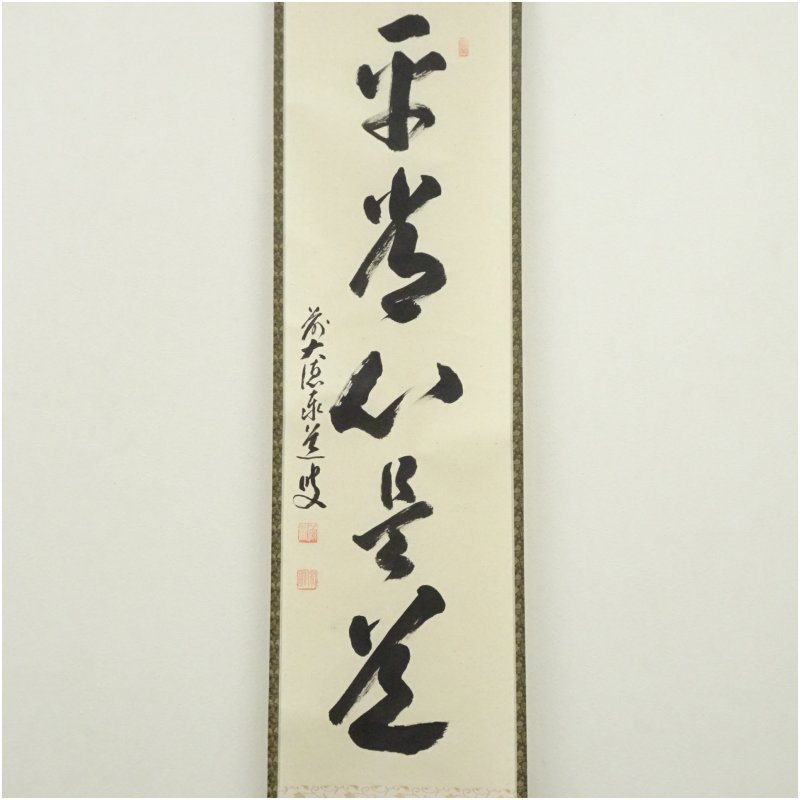 平常心是道
前大徳泰道叟